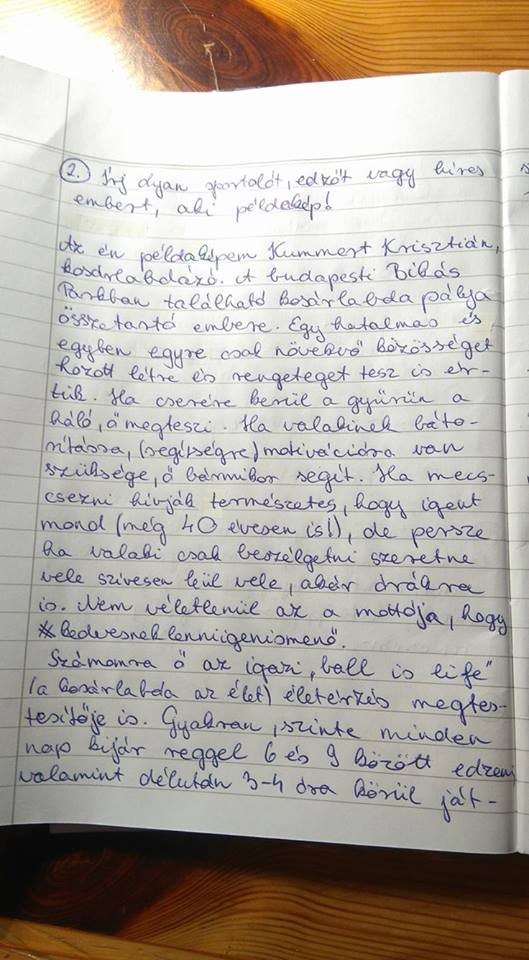 2. Írj olyan sportolót, edzőt vagy híres
embert, aki példakép!
Az én példaképem Kummert Krisztián,
kosárlabdázó. A budapesti Bikás
Parkban található kosárlabda pálya
összetartó embere. Egy hatalmas és
egyben egyre csak növekvő közösséget
hozott létre és rengeteget tesz is ér-
tük. Ha cserére kerül a gyűrűn a
háló, ő megteszi. Ha valakinek báto-
rításra, (segítségre) motivációra van
szüksége, ő bármikor segít. Ha mecs-
csezni hívják természetes, hogy igent
mond (még 40 évesen is!), de persze
ha valaki csak beszélgetni szeretne
vele szívesen leül vele, akár órákra
is. Nem véletlenül az a mottója, hogy
#kedvesneklenniigenismenő.
Számomra ő az igazi „ball is life"
(a kosárlabda az élet) életérzés megtes-
tesítője is. Gyakran, szinte minden
nap kijár reggel 6 és 9 között edzeni
valamint délután 3-4 óra körül ját-